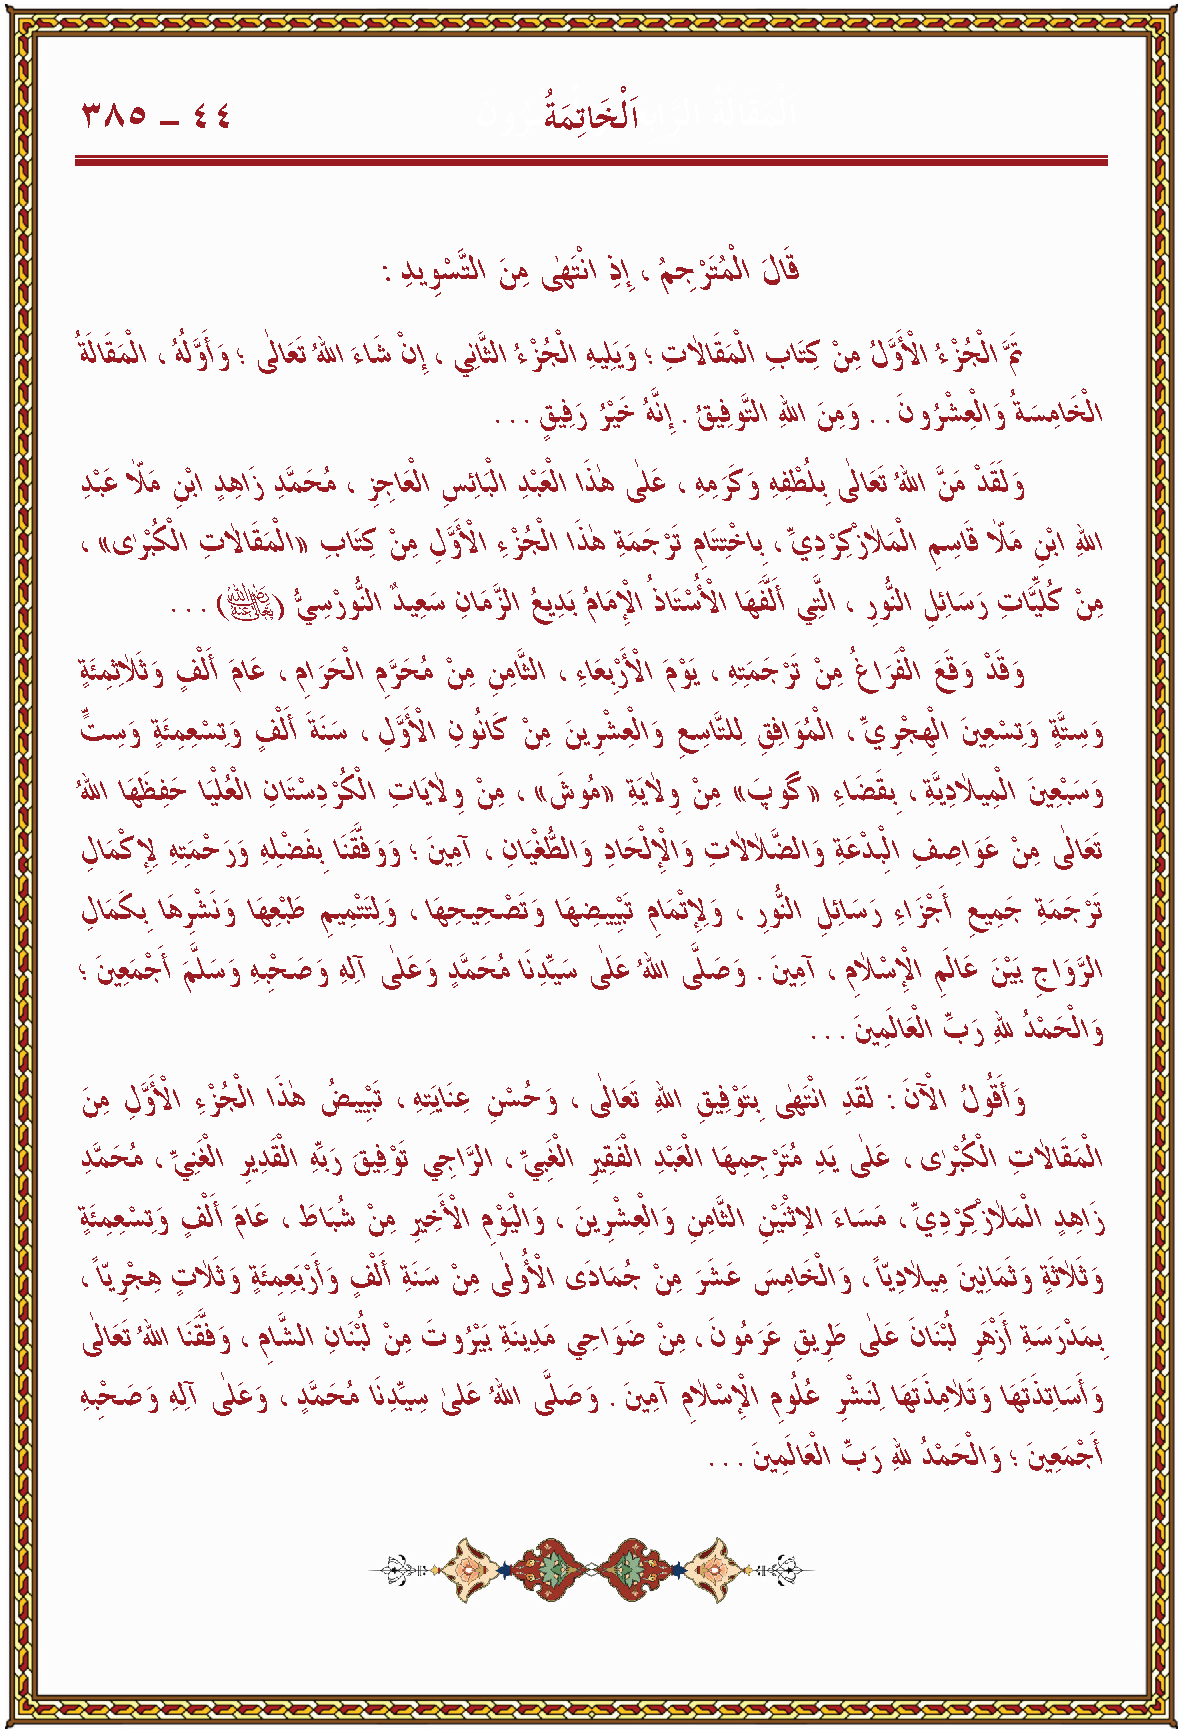 اَلْخَاتِمَةُ
٤٤ ــ ٣٨٥
قَالَ الْمُتَرْجِمُ ، إِذِ انْتَهٰى مِنَ التَّسْوِيدِ :
تَمَّ الْجُزْءُ الْأَوَّلُ مِنْ كِتَابِ الْمَقَالَاتِ ؛ وَيَلِيهِ الْجُزْءُ الثَّانِي ، إِنْ شَاءَ اللهُ تَعَالٰى ؛ وَأَوَّلُهُ ، الْمَقَالَةُ
الْخَامِسَةُ وَالْعِشْرُونَ . . وَمِنَ اللهِ التَّوْفِيقُ . إِنَّهُ خَيْرُ رَفِيقٍ . . .
وَلَقَدْ مَنَّ اللهُ تَعَالٰى بِلُطْفِهِ وَكَرَمِهِ ، عَلٰى هٰذَا الْعَبْدِ الْبَائِسِ الْعَاجِزِ ، مُحَمَّدِ زَاهِدٍ ابْنِ مَلَّا عَبْدِ
اللهِ ابْنِ مَلَّا قَاسِمِ الْمَلَازْكِرْدِيِّ ، بِاخْتِتَامِ تَرْجَمَةِ هٰذَا الْجُزْءِ الْأَوَّلِ مِنْ كِتَابِ «الْمَقَالَاتِ الْكُبْرٰى» ،
مِنْ كُلِّيَّاتِ رَسَائِلِ النُّورِ ، الَّتِي أَلَّفَهَا الْأُسْتَاذُ الْإِمَامُ بَدِيعُ الزَّمَانِ سَعِيدٌ النُّورْسِيُّ (رضي الله تعالى عنه) . . .
وَقَدْ وَقَعَ الْفَرَاغُ مِنْ تَرْجَمَتِهِ ، يَوْمَ الْأَرْبِعَاءِ ، الثَّامِنِ مِنْ مُحَرَّمِ الْحَرَامِ ، عَامَ أَلْفٍ وَثَلَاثِمِئَةٍ
وَسِتَّةٍ وَتِسْعِينَ الْهِجْرِيِّ ، الْمُوَافِقِ لِلتَّاسِعِ وَالْعِشْرِينَ مِنْ كَانُونِ الْأَوَّلِ ، سَنَةَ أَلْفٍ وَتِسْعِمِئَةٍ وَسِتٍّ
وَسَبْعِينَ الْمِيلَادِيَّةِ ، بِقَضَاءِ «گوپَ» مِنْ وِلَايَةِ «مُوشَ» ، مِنْ وِلَايَاتِ الْكُرْدِسْتَانِ الْعُلْيَا حَفِظَهَا اللهُ
تَعَالٰى مِنْ عَوَاصِفِ الْبِدْعَةِ وَالضَّلَالَاتِ وَالْإِلْحَادِ وَالطُّغْيَانِ ، آمِينَ ؛ وَوَفَّقَنَا بِفَضْلِهِ وَرَحْمَتِهِ لِإِكْمَالِ
تَرْجَمَةِ جَمِيعِ أَجْزَاءِ رَسَائِلِ النُّورِ ، وَلِإِتْمَامِ تَبْيِيضِهَا وَتَصْحِيحِهَا ، وَلِتَتْمِيمِ طَبْعِهَا وَنَشْرِهَا بِكَمَالِ
الرَّوَاجِ بَيْنَ عَالَمِ الْإِسْلَامِ ، آمِينَ . وَصَلَّى اللهُ عَلٰى سَيِّدِنَا مُحَمَّدٍ وَعَلٰى آلِهِ وَصَحْبِهِ وَسَلَّمَ أَجْمَعِينَ ؛
وَالْحَمْدُ لِلهِ رَبِّ الْعَالَمِينَ . . .
وَأَقُولُ الْآنَ : لَقَدِ انْتَهٰى بِتَوْفِيقِ اللهِ تَعَالٰى ، وَحُسْنِ عِنَايَتِهِ ، تَبْيِيضُ هٰذَا الْجُزْءِ الْأَوَّلِ مِنَ
الْمَقَالَاتِ الْكُبْرٰى ، عَلٰى يَدِ مُتَرْجِمِهَا الْعَبْدِ الْفَقِيرِ الْغَبِيِّ ، الرَّاجِي تَوْفِيقَ رَبِّهِ الْقَدِيرِ الْغَنِيِّ ، مُحَمَّدِ
زَاهِدٍ الْمَلَازْكِرْدِيِّ ، مَسَاءَ الِاثْنَيْنِ الثَّامِنِ وَالْعِشْرِينَ ، وَالْيَوْمِ الْأَخِيرِ مِنْ شُبَاطَ ، عَامَ أَلْفٍ وَتِسْعِمِئَةٍ
وَثَلَاثَةٍ وَثَمَانِينَ مِيلَادِيّاً ، وَالْخَامِسَ عَشَرَ مِنْ جُمَادَى الْأُولٰى مِنْ سَنَةِ أَلْفٍ وَأَرْبَعِمِئَةٍ وَثَلَاثٍ هِجْرِيّاً ،
بِمَدْرَسَةِ أَزْهَرِ لُبْنَانَ عَلٰى طَرِيقِ عَرَمُونَ ، مِنْ ضَوَاحِي مَدِينَةِ بَيْرُوتَ مِنْ لُبْنَانِ الشَّامِ ، وَفَّقَنَا اللهُ تَعَالٰى
وَأَسَاتِذَتَهَا وَتَلَامِذَتَهَا لِنَشْرِ عُلُومِ الْإِسْلَامِ آمِينَ . وَصَلَّى اللهُ عَلىٰ سِيِّدِنَا مُحَمَّدٍ ، وَعَلٰى آلِهِ وَصَحْبِهِ
أَجْمَعِينَ ؛ وَالْحَمْدُ لِلهِ رَبِّ الْعَالَمِينَ . . .